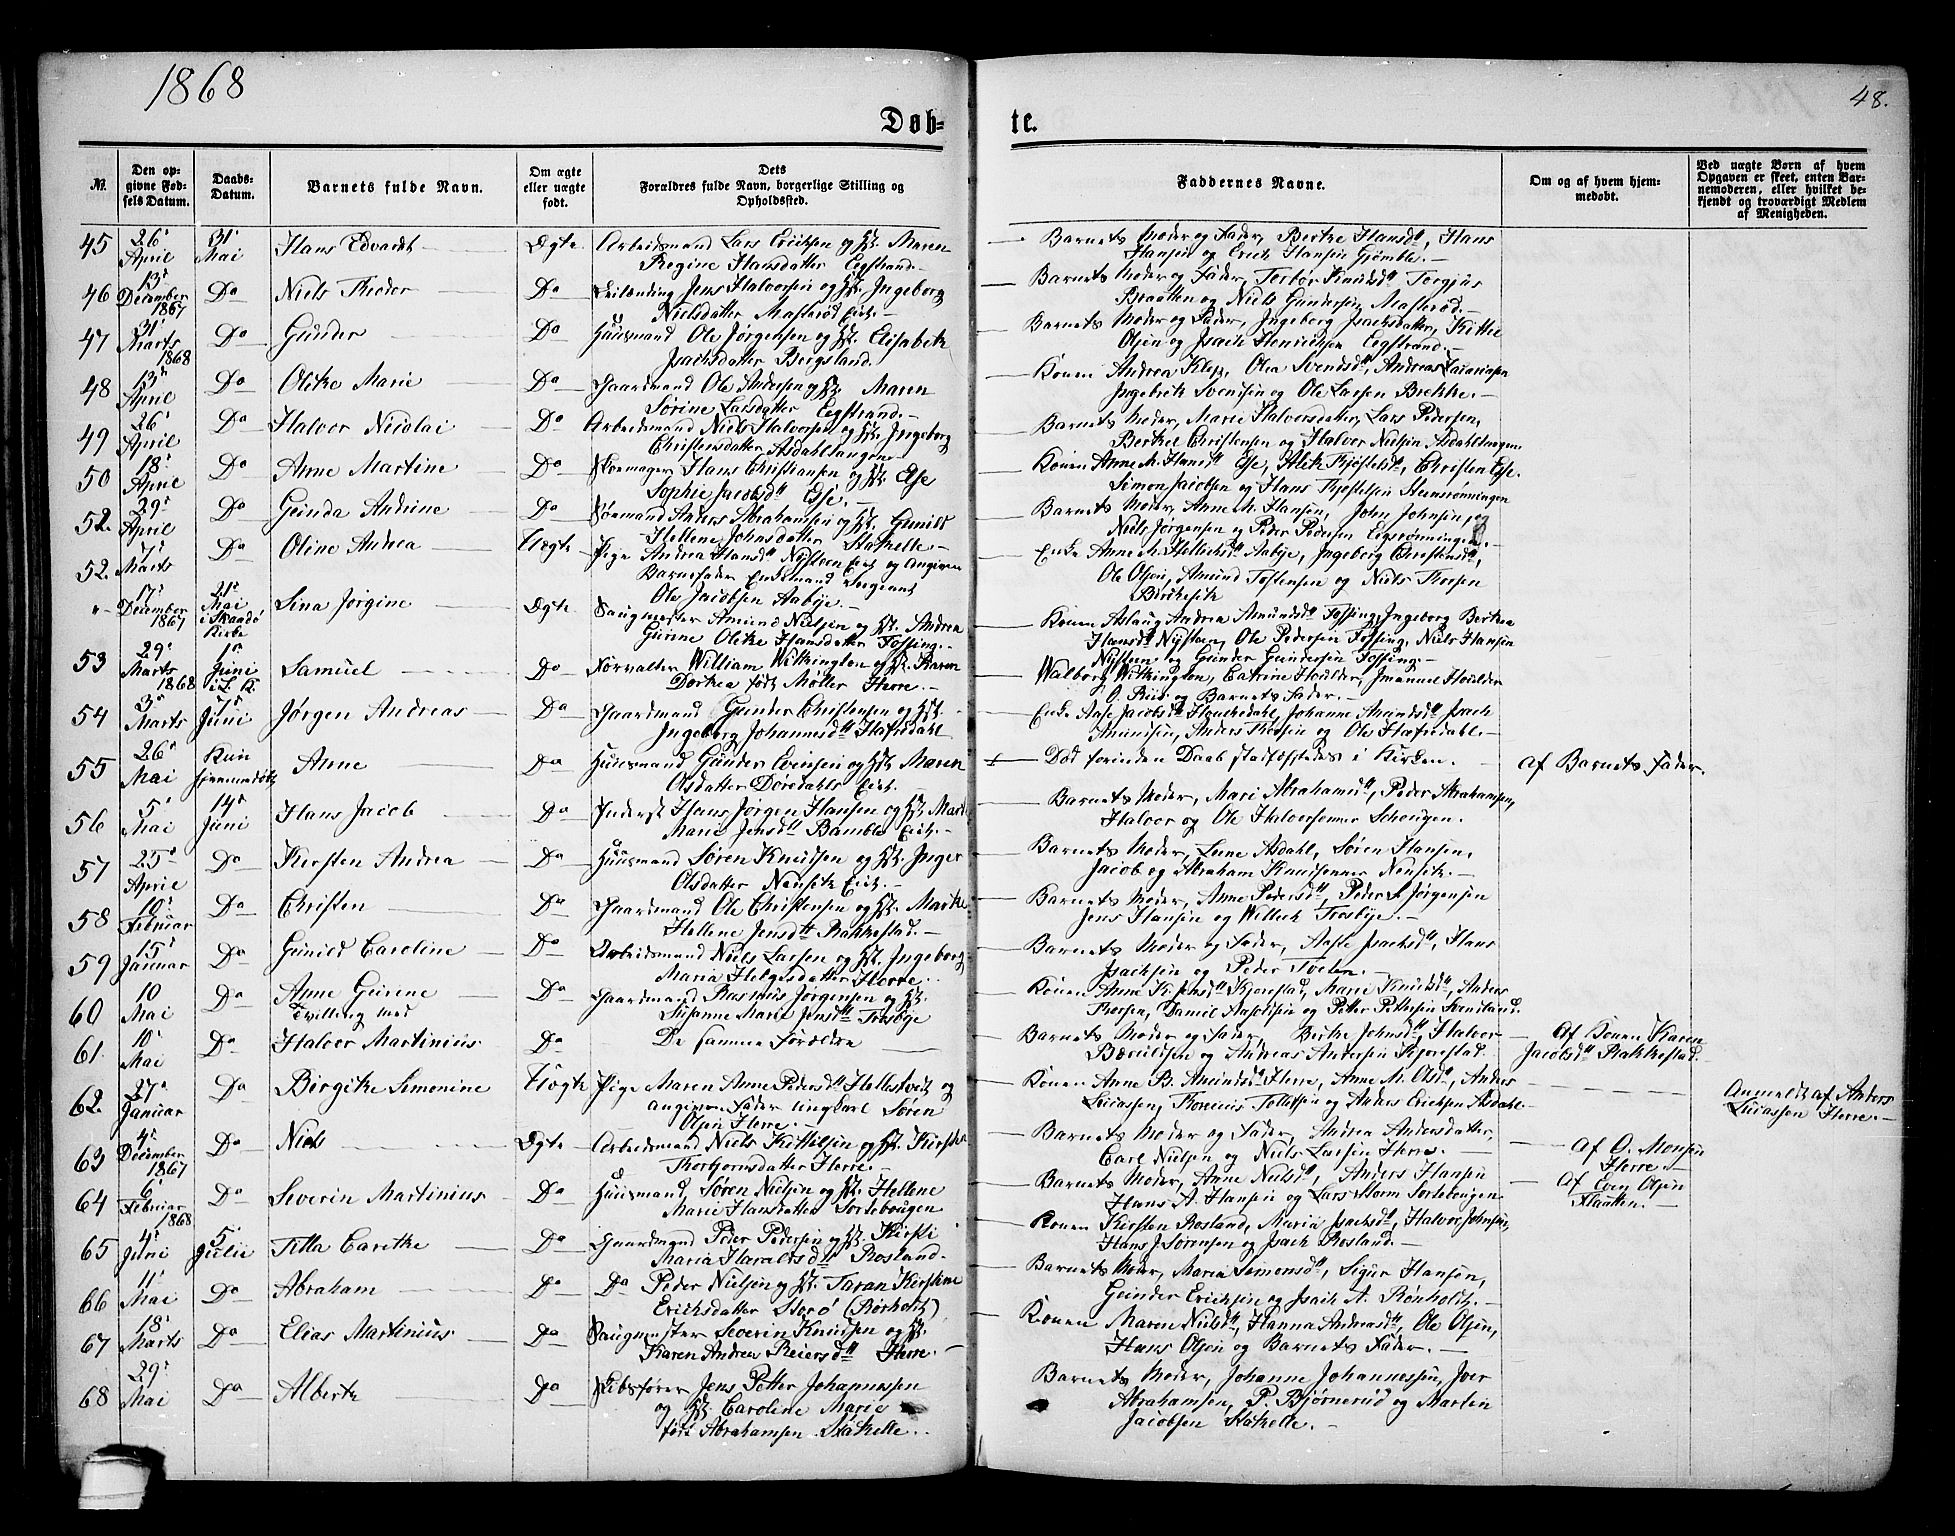 1868
48.
Døb=
te.
№.
Den op=
givne Fød=
sels Datum.
Daabs=
Datum.
Barnets fulde Navn.
Om ægte
eller uægte
født.
Dets
Forældres fulde Navn, borgerlige Stilling og
Opholdssted.
Faddernes Navne.
Om og af hvem hjem=
medøbt.
Ved uægte Børn af hvem
Opgaven er skeet, enten Bar=
nemoderen, eller hvilket be=
kjendt og troværdigt Medlem
af Menigheden.
45 26' April 31' Mai Hans Edvardt Ægte Arbeidsmand Lars Ericksen og H. Maren
Regine Hansdatter Eegstrand.
Barnets Moder og Fader, Berthe Hansd., Hans
Hansen og Erick Hansen Gjømle.
46 13' December 1867 Do Niels Theder Do Leilænding Jens Halvorsen og H. Ingeborg
Nielsdatter Masterød Eid.
Barnets Moder og Fader, Torbør Knudsd. Torgjus
Braatten og Niels Gundersen Masterød.
47 31' Marts 1868 Do Gunder Do Huusmand Ole Jørgensen og H. Elisabeth
Isachsdatter Bergsland.
Barnets Moder og Fader, Ingeborg Isachsdatter, Kittel
Olsen og Isach Henricksen Eegstrand.
48 13' April Do Olike Marie Do Gaardmand Ole Andersen og H. Maren
Sørine Larsdatter Eegstrand.
Konen Andrea Klep, Olea Svendsd., Andreas Zacariasen
Ingebrik Svensen og Ole Larsen Brekke.
49 26' April Do Halvor Nicolai Do Arbeidsmand Niels Halvorsen og H. Ingeborg
Christensdatter Asdahltangen
Barnets Moder, Marie Halvorsdatter, Lars Pedersen,
Berthel Christensen og Halvor Nielsen Asdahltangen
50 18' April Do Anne Martine Do Skomager Hans Christiansen og H. Else
Sophie Jacobsd. Ese.
Konen Anne M. Hansd. Ese, Alek Kjøstelsd., Christen Ese.
Simon Jacobsen og Hans Kjøstelsen Stemrønningen
52. 29' April Do Gunda Andrine Do Sømand Anders Abrahamsen og H. Gunild
Hellene Johnsdatter Stathelle.
Barnets Moder, Anne M. Hansen, John Johnsen, og
Niels Jørgensen og Peder Pedersen Eegsrønningen.
52. 7' Marts Do Oline Andrea Uægte Pige Andrea Hansd. Nysteen Eid og angiven
Barnefader Enkemand Sergeant
Ole Jacobsen Aabye.
Enke Anne M. Hellicksd. Aabye, Ingeborg Christensd.,
Ole Olsen, Amund Tostensen og Niels Thorsen
Birkevik
"- 17' December 1867 21' Mai i Skaadø Kirke Lina Jørgine Ægte Saugmester Amund Nielsen og H. Andrea
Gunne Olike Hansdatter Fossing.
Konen Aslaug Andrea Amundsd. Fossing, Ingeborg Berthea
Hansd. Nysteen, Ole Pedersen Fossing, Niels Hansen
Nysteen og Gunder Gundersen Fossing.
53 29' Marts 1868 1' Juni i L. K. Samuel Do Forvalter William Withington og H. Karen
Dorthea født Møller Herre.
Walborg Withington, Catrine Houlder, Imanuel Houlder
O. Riis og Barnets Fader.
54 3' Marts 7' Juni Jørgen Andreas Do Gaardmand Gunder Christensen og H.
Ingeborg Johannesd. Hafredahl
Enke Aase Jacobsd. Hafredahl, Johanne Amundsd. Isach
Amundsen, Anders Thorsen og Ole Hafredahl.
55 26' Mai Kun hjemmedøbt Anne Do Huusmand Gunder Evensen og H. Maren
Olsdatter Dørdahls Eid.
Død forinden Daab stadfæstedes i Kirken.
Af Barnets Fader.
56 5' Mai 14' Juni Hans Jacob Do Inderst Hans Jørgen Hansen og H. Mari
Marie Jensd. Bamble Eid.
Barnets Moder, Mari Abrahamsd., Peder Abrahamsen,
Halvor og Ole Halvorsønner Schougen.
57 25' April Do Kirsten Andrea Do Huusmand Søren Knudsen og H. Inger
Olsdatter Nensvik Eid.
Barnets Moder, Lene Asdahl, Søren Hansen,
Jacob og Abraham Knudsønner Nensvik.
58 10' Februar Do Christen Do Gaardmand Ole Christensen og H. Marthe
Hellene Jensd. Rakkestad.
Barnets Moder, Anne Pedersd., Peder S. Jørgensen
Jens Hansen og Willeck Trosbye.
59 15' Januar Do Gunild Caroline Do Arbeidsmand Niels Larsen og H. Ingeborg
Maria Helgesdatter Herre.
Barnets Moder og Fader, Aase Isachsd., Hans
Isachsen og Peder Tveten.
60 10 Mai Do Anne Gurene
Tvilling med
Do Gaardmand Rasmus Jørgensen og H.
Susanne Marie Jensd. Trosbye
Konen Anne K. Jensd. Kjørestad, Marie Knudsd., Anders
Thorsen, Daniel Aasoldsen og Petter Pettersen Svensland.
61. 10' Mai Do Halvor Martinius. Do De samme Forældre
Barnets Moder og Fader, Birthe Johnsd., Halvor
Bærulfsen og Andreas Andersen Kjørestad.
Af Konen Karen
Jacobsd. Rakkestad.
62. 27' Januar Do Birgitke Simonine Uægte Pige Maren Anne Pedersd. Hellestveit og
angiven Fader ungkarl Søren
Olsen Herre.
Konen Anne B. Amundsd. Herre, Anne M. Olsd., Anders
Lucassen, Thomius Tollefsen og Anders Ericksen Asdahl.
Anmeldt af Anders
Lucassen Herre.
63 4' December 1867 Do Niels Ægte Arbeidsmand Niels Kittelsen og H. Kirsten
Thorbjørnsdatter Herre.
Barnets Moder og Fader, Andrea Andersdatter,
Carl Nielsen og Niels Larsen Herre.
Af O. Monsen
Herre.
64 6' Februar 1868 Do Severin Martinius Do Huusmand, Søren Nielsen og H. Hellene
Marie Hansdatter Sortebougen
Barnets Moder, Anne Nielsd., Anders Hansen
Hans A. Hansen og Lars Storm Sortebougen
Af Even Olsen
Flaatten.
65 4' Juni 5' Julii Titta Carethe Do Gaardmand Peder Pedersen og H. Kirsti
Maria Haraldsd. Rosland.
Konen Kirsten Rosland, Maria Isachsd., Halvor Johnsen,
Hans J. Sørensen og Isach Rosland.
66 11' Mai Do Abraham Do Do Peder Nielsen og H. Taran Kirstine
Ericksdatter Storø (Rørholt)
Barnets Moder, Maria Simonsd., Sigur Hansen,
Gunder Ericksen og Isach A. Rønholt.
67 18' Marts Do Elias Martinius Do Saugmester Severin Knudsen og H.
Karen Andrea Reiersd. Herre.
Konen Maren Nielsd., Hanna Andreasd., Ole Olsen,
Hans Olsen og Barnets Fader.
68 29' Mai Do Alberth Do Skibsfører Jens Petter Johannesen
og H. Caroline Marie
født Abrahamsen Stathelle.
Barnets Moder, Johanne Johannessen, Joer
Abrahamsen, P. Bjørnerud og Martin
Jacobsen Stathelle.